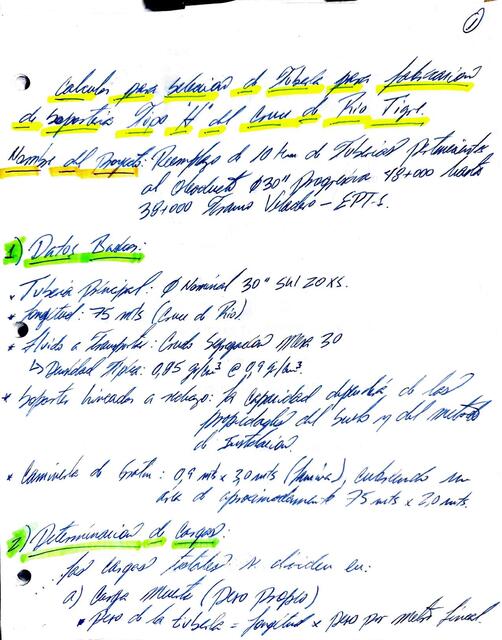 1
Calculos para Selección de Tubería para fabricación
de Soportería Tipo "H" del Cruce de Rio Tigre.
Nombre del Proyecto: Reemplazo de 10 km de Tuberias pertenecientes
al Oleoducto Ø30" progresiva 48+000 hasta
38+000 Tramo Veladero - EPT-1.
1) Datos Basicos:
Tuberia Principal: Ø Nominal 30" SCH 20 XS.
* Longitud: 75 mts (Cruce de Rio).
* Fluido a Transportar: Crudo Segregación Merey 30
↳ Densidad Tipica: 0,85 g/cm³ @ 0,9 g/cm³.
* Soportes hincados a rechazo: la capacidad dependerá de las
propiedades del Suelo y del metodo
de Instalación.
* Camineria de : 0,9 mts x 3,0 mts (), cubriendo un
area de aproximadamente 75 mts x 2,0 mts.
2) Determinacion de Cargas:
Las cargas totales se dividen en:
a) Carga Muerta (Peso Propio)
* peso de la tuberia = longitud x peso por metro lineal.